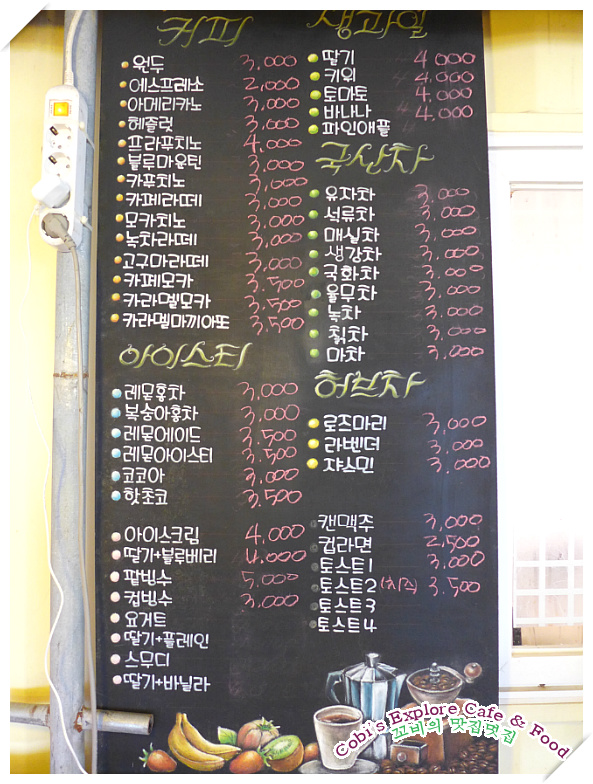 커피
원두 3,000
에스프레소 2,000
아메리카노 3,000
헤즐럿 3,000
프라푸치노 4,000
블루마운틴 3,000
카푸치노 3,000
카페라떼 3,000
모카치노 3,000
녹차라떼 3,000
고구마라떼 3,000
카페모카 3,500
카라멜모카 3,500
카라멜마끼아또 3,500
아이스티
레몬홍차 3,000
복숭아홍차 3,000
레몬에이드 3,500
레몬아이스티 3,500
코코아 3,000
핫초코 3,500
아이스크림 4,000
딸기+블루베리 4,000
팥빙수 5,000
컵빙수 3,000
요거트
딸기+플레인
스무디
딸기+바닐라
생과일
딸기 4,000
키위 4,000
토마토 4,000
바나나 4,000
파인애플
국산차
유자차 3,000
석류차 3,000
매실차 3,000
생강차 3,000
국화차 3,000
율무차 3,000
녹차 3,000
칡차 3,000
마차 3,000
허브차
로즈마리 3,000
라벤더 3,000
쟈스민 3,000
캔맥주 3,000
컵라면 2,500
토스트1 3,000
토스트2 (치즈) 3,500
토스트3
토스트4
Cobi's Explore Cafe & Food
꼬비의 맛집멋집